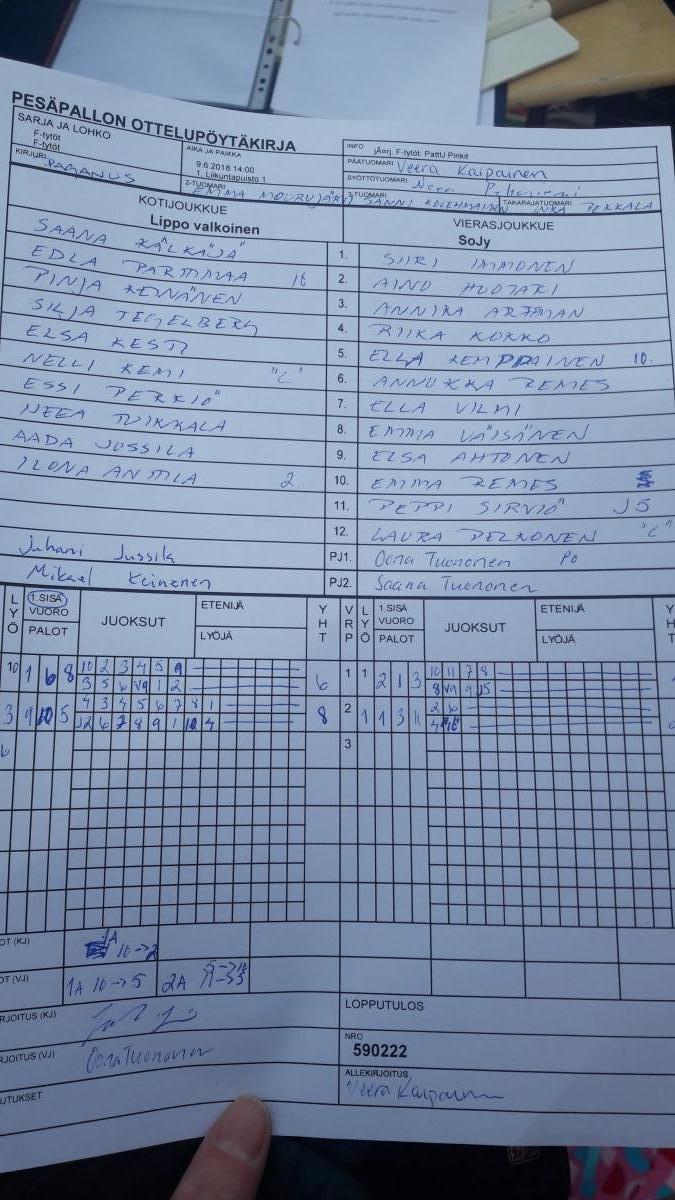 PESÄPALLON OTTELUPÖYTÄKIRJA
SARJA JA LOHKO
F-tytöt
F-tytöt
AIKA JA PAIKKA
9.6.2018 14:00
1. Liikuntapuisto 1
INFO
jÄerj. F-tytöt: PattU Pinkit
PÄÄTUOMARI Veera Kaipainen
SYÖTTÖTUOMARI Neea
KIRJURI PARANUS
2-TUOMARI EMMA
3-TUOMARI SANNI KOLEHMAINEN
TAKARAJATUOMARI INKA PEKKALA
KOTIJOUKKUE
Lippo valkoinen
VIERASJOUKKUE
SoJy
SAANA KÄLKÄJÄ 1. SIIRI IMMONEN
EDLA PARMMAA 16 2. AINO HUOTARI
PINJA KEINÄNEN 3. ANNIKA ARTMAN
SILJA TEGELBERG 4. RIIKA KOKKO
ELSA KESTI 5. ELLA KEMPPAINEN 10.
NELLI KEMI "L" 6. ANNUKKA REMES
ESSI PERKIÖ 7. ELLA VILMI
NEEA TUIKKALA 8. EMMA VÄISÄNEN
AADA JUSSILA 9. ELSA AHTONEN
ILONA ANTTILA 2. 10. EMMA REMES
11. PEPPI SIRVIÖ J5
12. LAURA PELKONEN "L"
Juhani Jussila PJ1. Oona Tuononen Po
Mikael Keinänen PJ2. Saana Tuononen
LYÖ 1.SISÄ VUORO PALOT JUOKSUT ETENIJÄ LYÖJÄ YHT VRP LYÖ 1.SISÄ VUORO PALOT JUOKSUT ETENIJÄ LYÖJÄ YHT
10 1 6 8 10 2 3 4 5 9 6 1 1 2 1 3 10 11 7 8
3 5 6 V9 1 2 8 V11 9 J5
3 9 10 5 4 3 4 5 6 7 8 1 8 2 1 1 3 11 2 6
J2 6 7 8 9 1 10 4 4 "10"
6 3
OT (KJ) 1A 10→2
OT (VJ) 1A 10→5 2A
RJOITUS (KJ)
LOPPUTULOS
RJOITUS (VJ) Oona Tuononen
NRO
590222
UTUKSET
ALLEKIRJOITUS
Veera Kaipainen